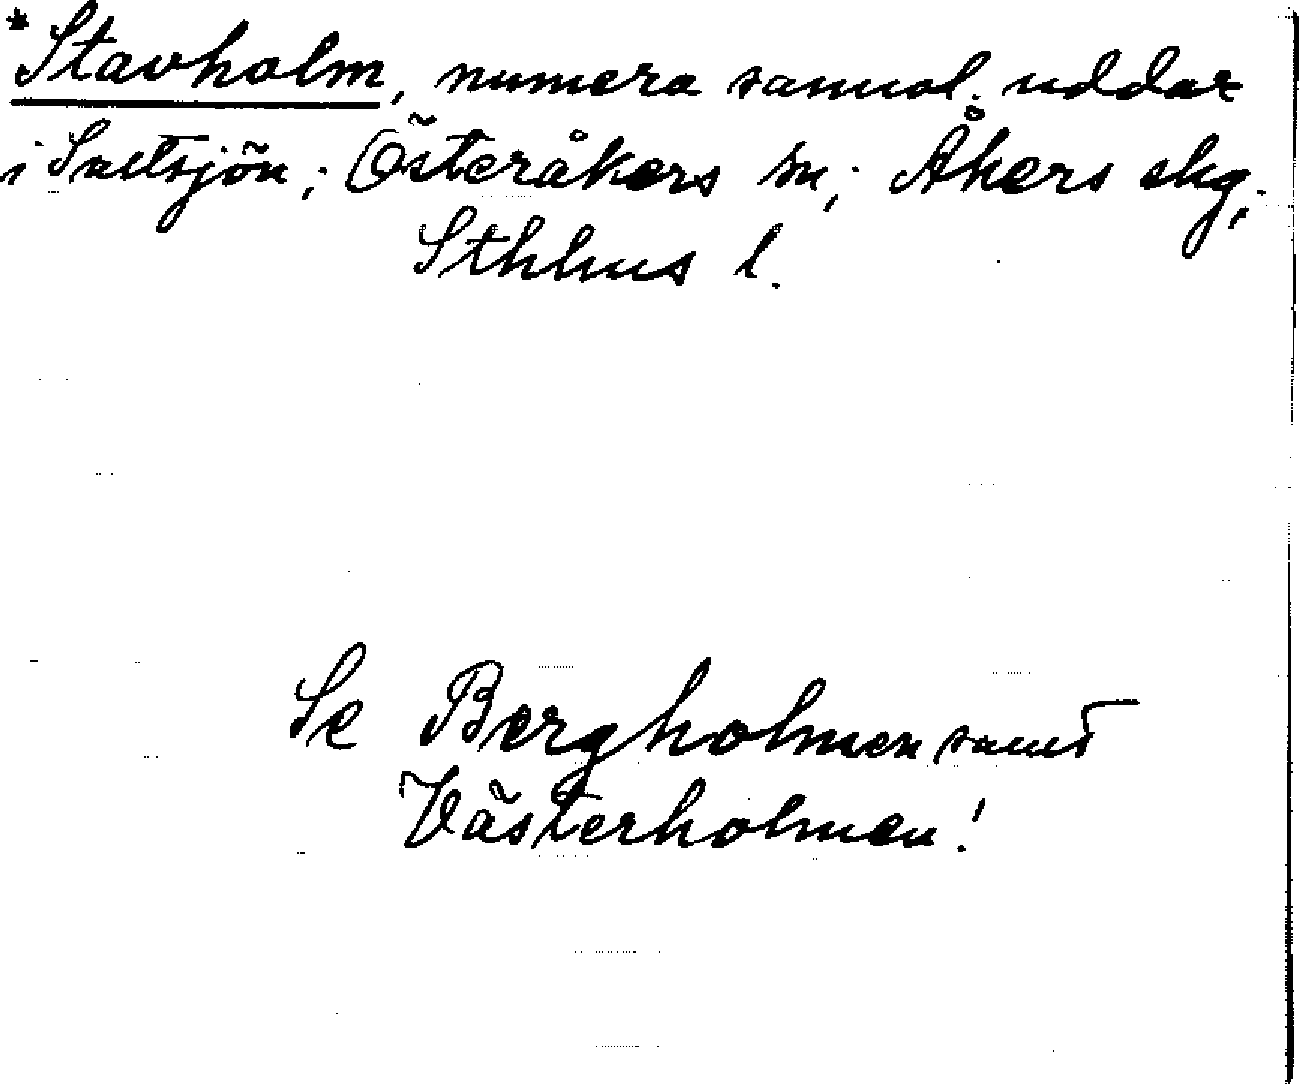 *Stavholm, numera samval. uddar
i Saltsjön; Österåkers sn; Åkers skg;
Sthlms l.
Se Bergholmen samt
Västerholmen!